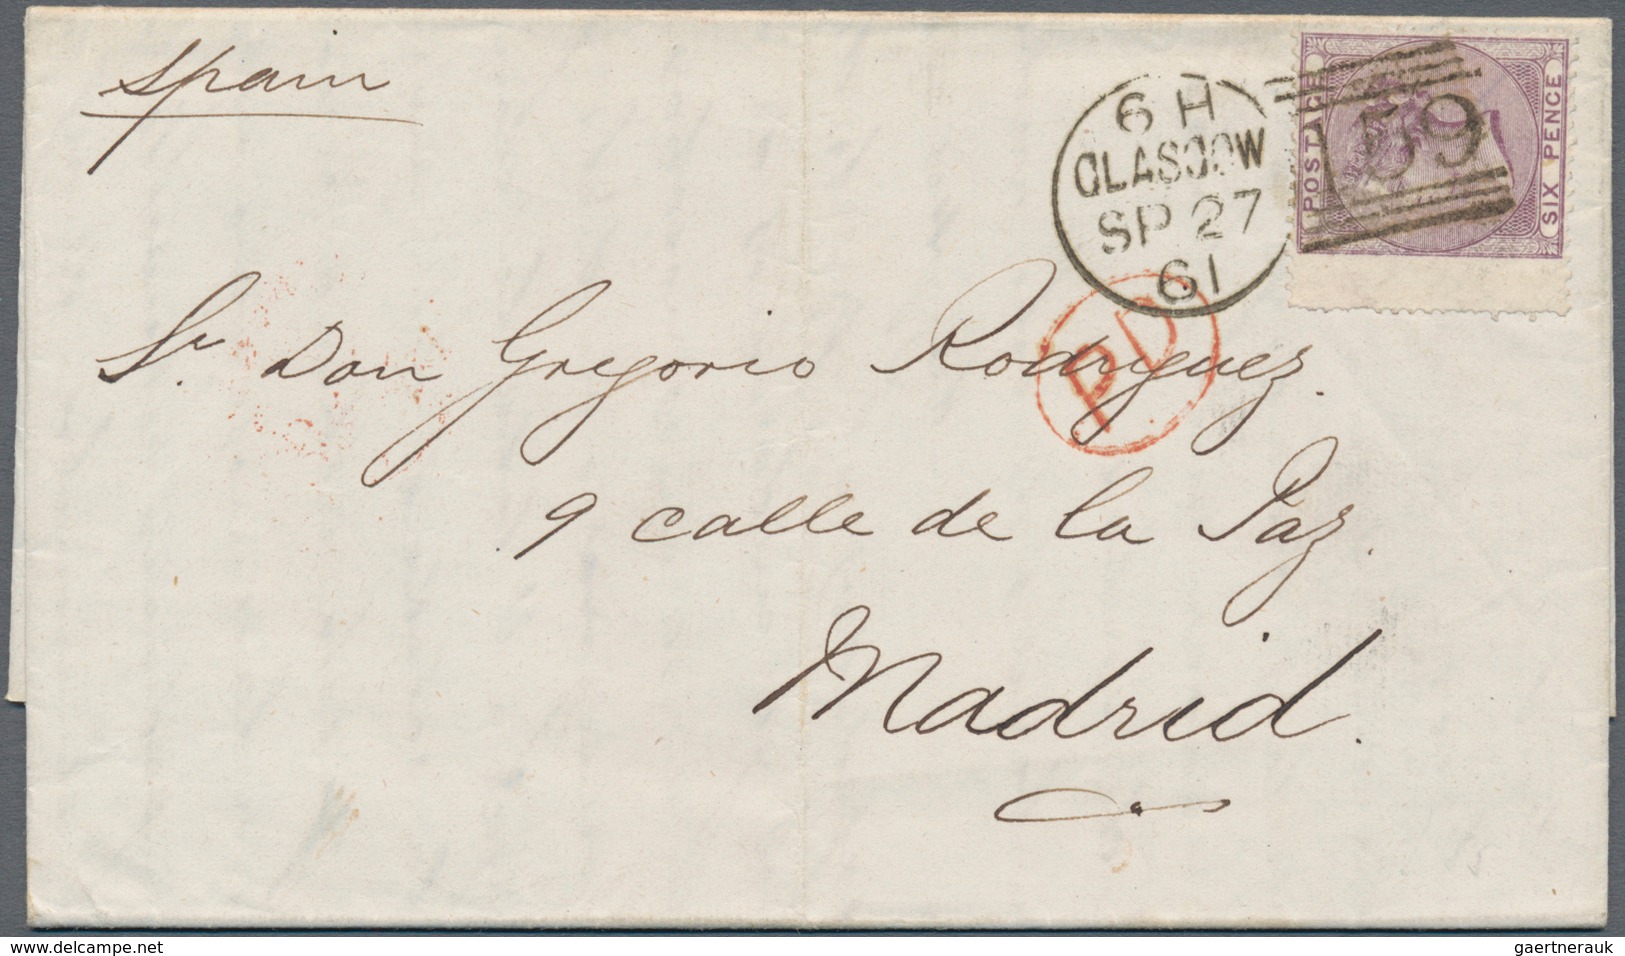 Spain
6 H
GLASGOW
SP 27
61
159
POSTAGE
SIX PENCE
PD
Sr. Don Gregorio Rodriguez.
9 calle de la Paz.
Madrid.
www.delcampe.net
gaertnerauk